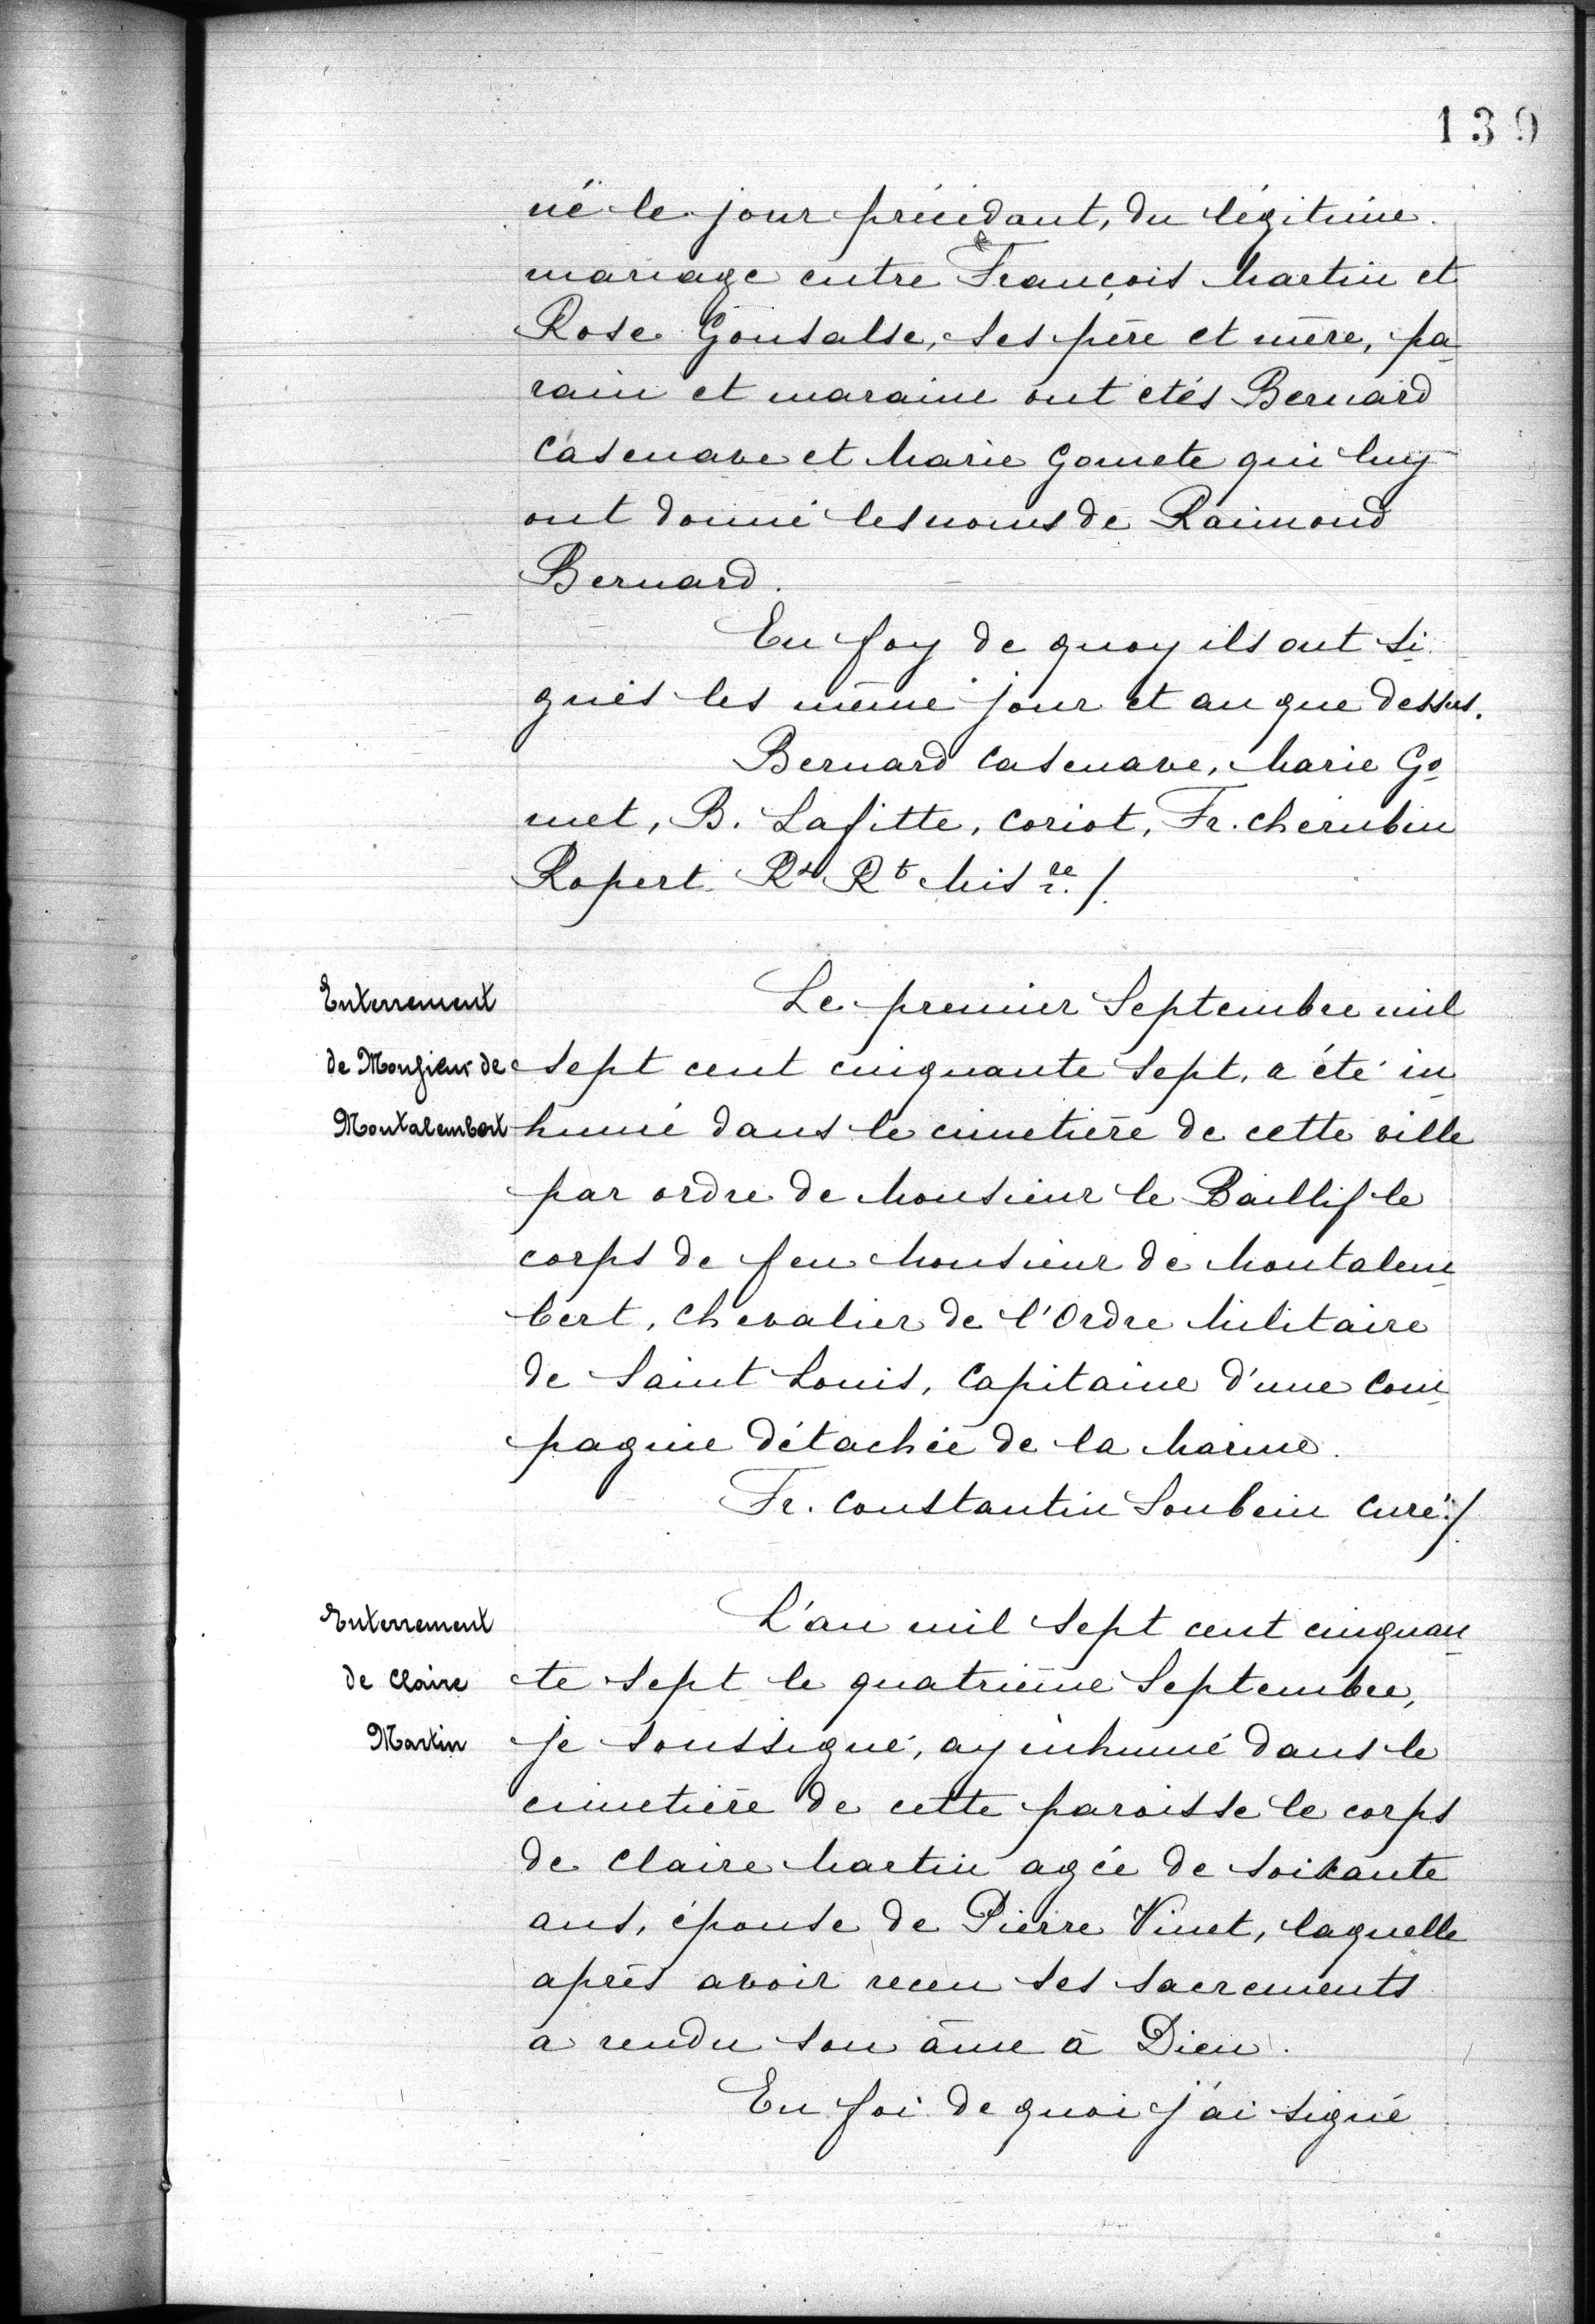 139
né le jour précédant, du légitime
mariage entre François Martin et
Rose Gonsalse, ses père et mère, pa
rain et maraine ont etés Bernard
Casenave et Marie Gomete qui luy
ont donné les noms de Raimond
Bernard.
En foy de quoy ils ont si
gnés les même jour et an que dessus.
Bernard Casenave, Marie Go
met, B. Lafitte, Coriot, Fr. Cherubin
Ropert Rx Rt Misre./.
Enterrement
de Monsieur de
Montalembert
Le premier Septembre mil
sept cent cinquante sept, a été in
humé dans le cimetière de cette ville
par ordre de Monsieur le Baillif le
corps de feu Monsieur de Montalem
bert, Chevalier de l'Ordre Militaire
de Saint Louis, Capitaine d'une Com
pagnie détachée de la Marine.
Fr. Constantin Soubein Curé./.
Enterrement
de Claire
Martin
L'an mil sept cent cinquan
te sept le quatrième Septembre,
je soussigné, ay inhumé dans le
cimetière de cette paroisse le corps
de Claire Martin agée de soixante
ans, épouse de Pierre Vinet, laquelle
après avoir receu ses sacrements
a rendu son âme à Dieu.
En foi de quoi j'ai signé